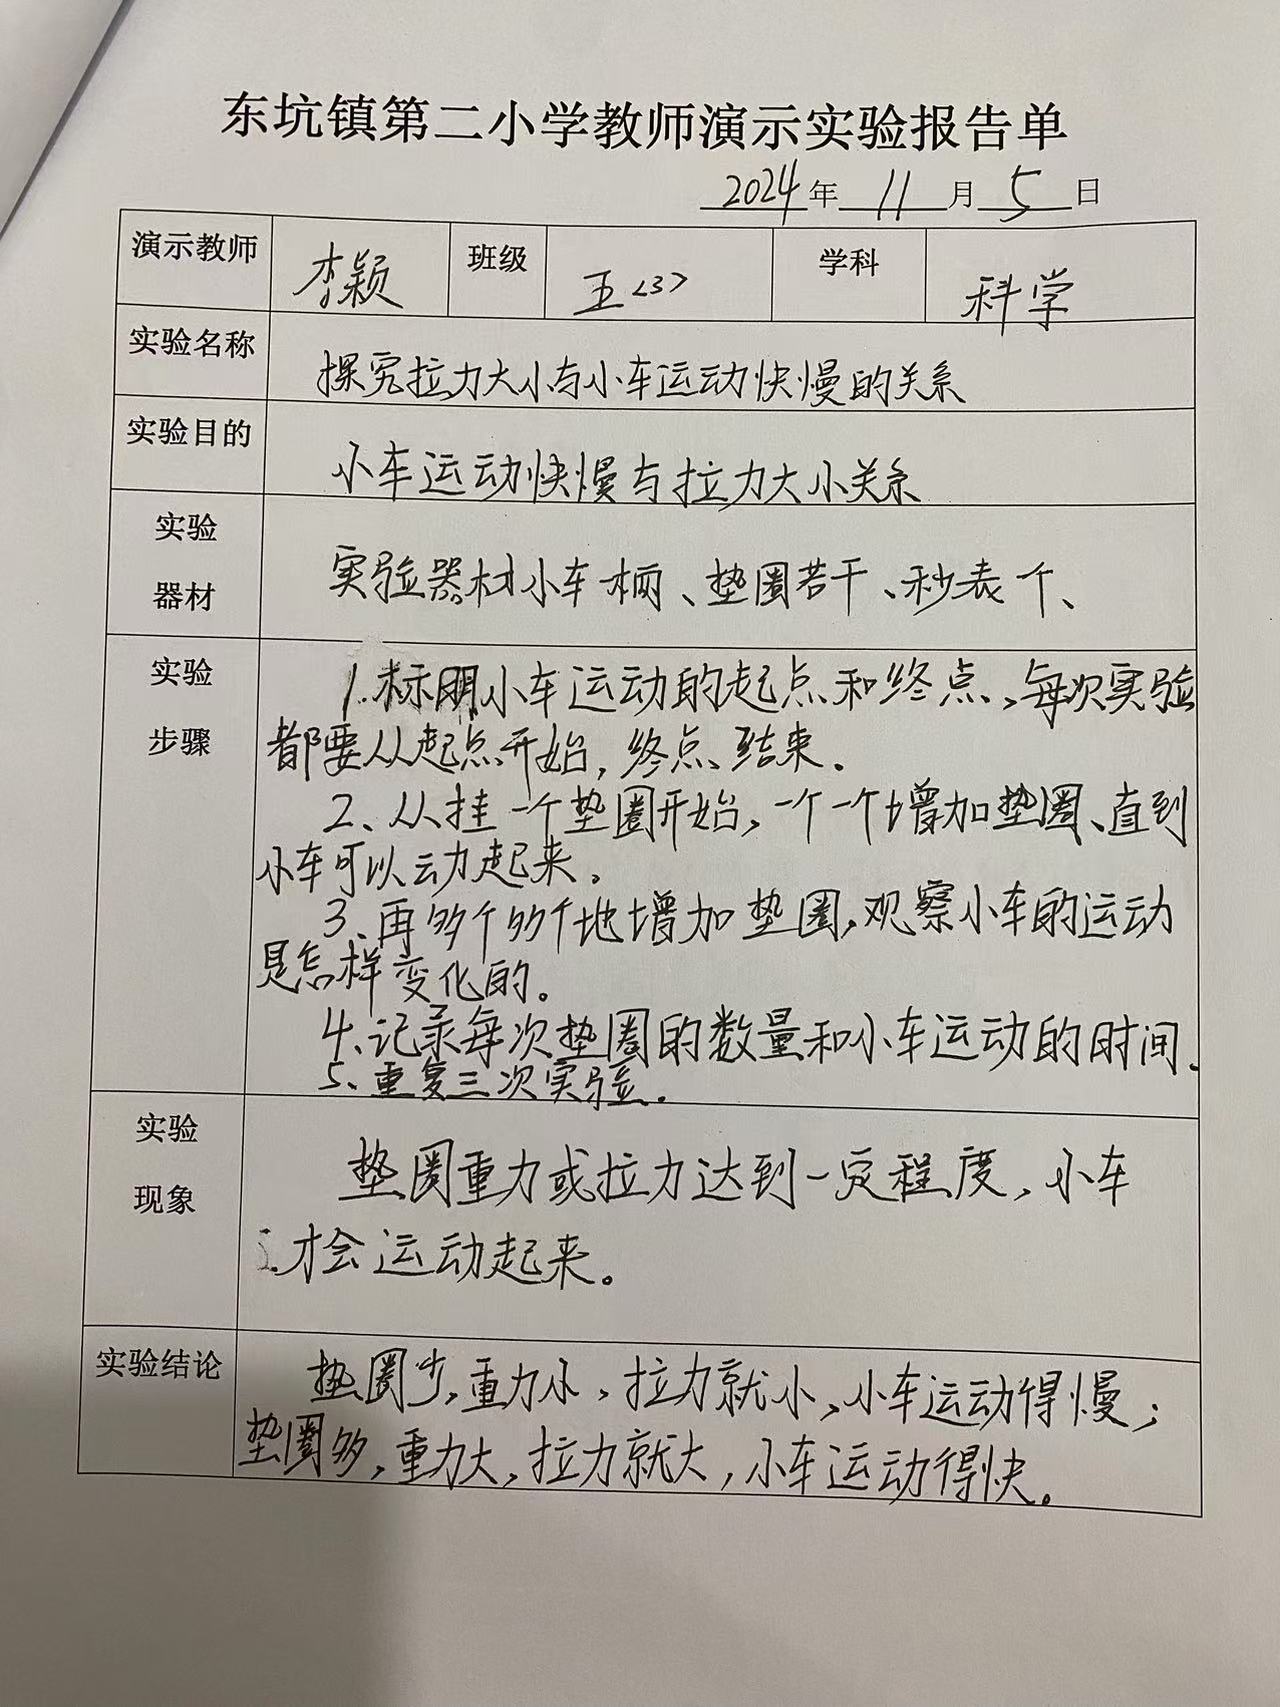 东坑镇第二小学教师演示实验报告单
2024年11月5日
演示教师 李颖 班级 五<3> 学科 科学
实验名称 探究拉力大小与小车运动快慢的关系
实验目的 小车运动快慢与拉力大小关系
实验
器材
实验器材小车 柄、垫圈若干、秒表 个、
实验
步骤
1.标明小车运动的起点和终点,每次实验
都要从起点开始,终点结束.
2、从挂一个垫圈开始,一个一个增加垫圈、直到
小车可以动起来.
3、再多个多个地增加垫圈,观察小车的运动
是怎样变化的。
4、记录每次垫圈的数量和小车运动的时间.
5、重复三次实验.
实验
现象
垫圈重力或拉力达到一定程度,小车
才会运动起来。
实验结论
垫圈少,重力小,拉力就小,小车运动得慢;
垫圈多,重力大,拉力就大,小车运动得快。